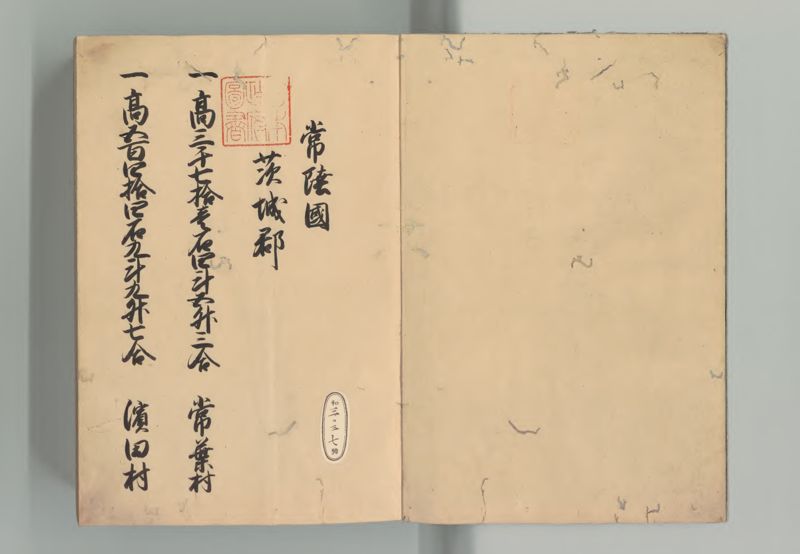 常陸國
茨城郡
一高三千七拾壱石四斗五升三合 常葉村
一高五百四拾四石九斗九升七合 濱田村